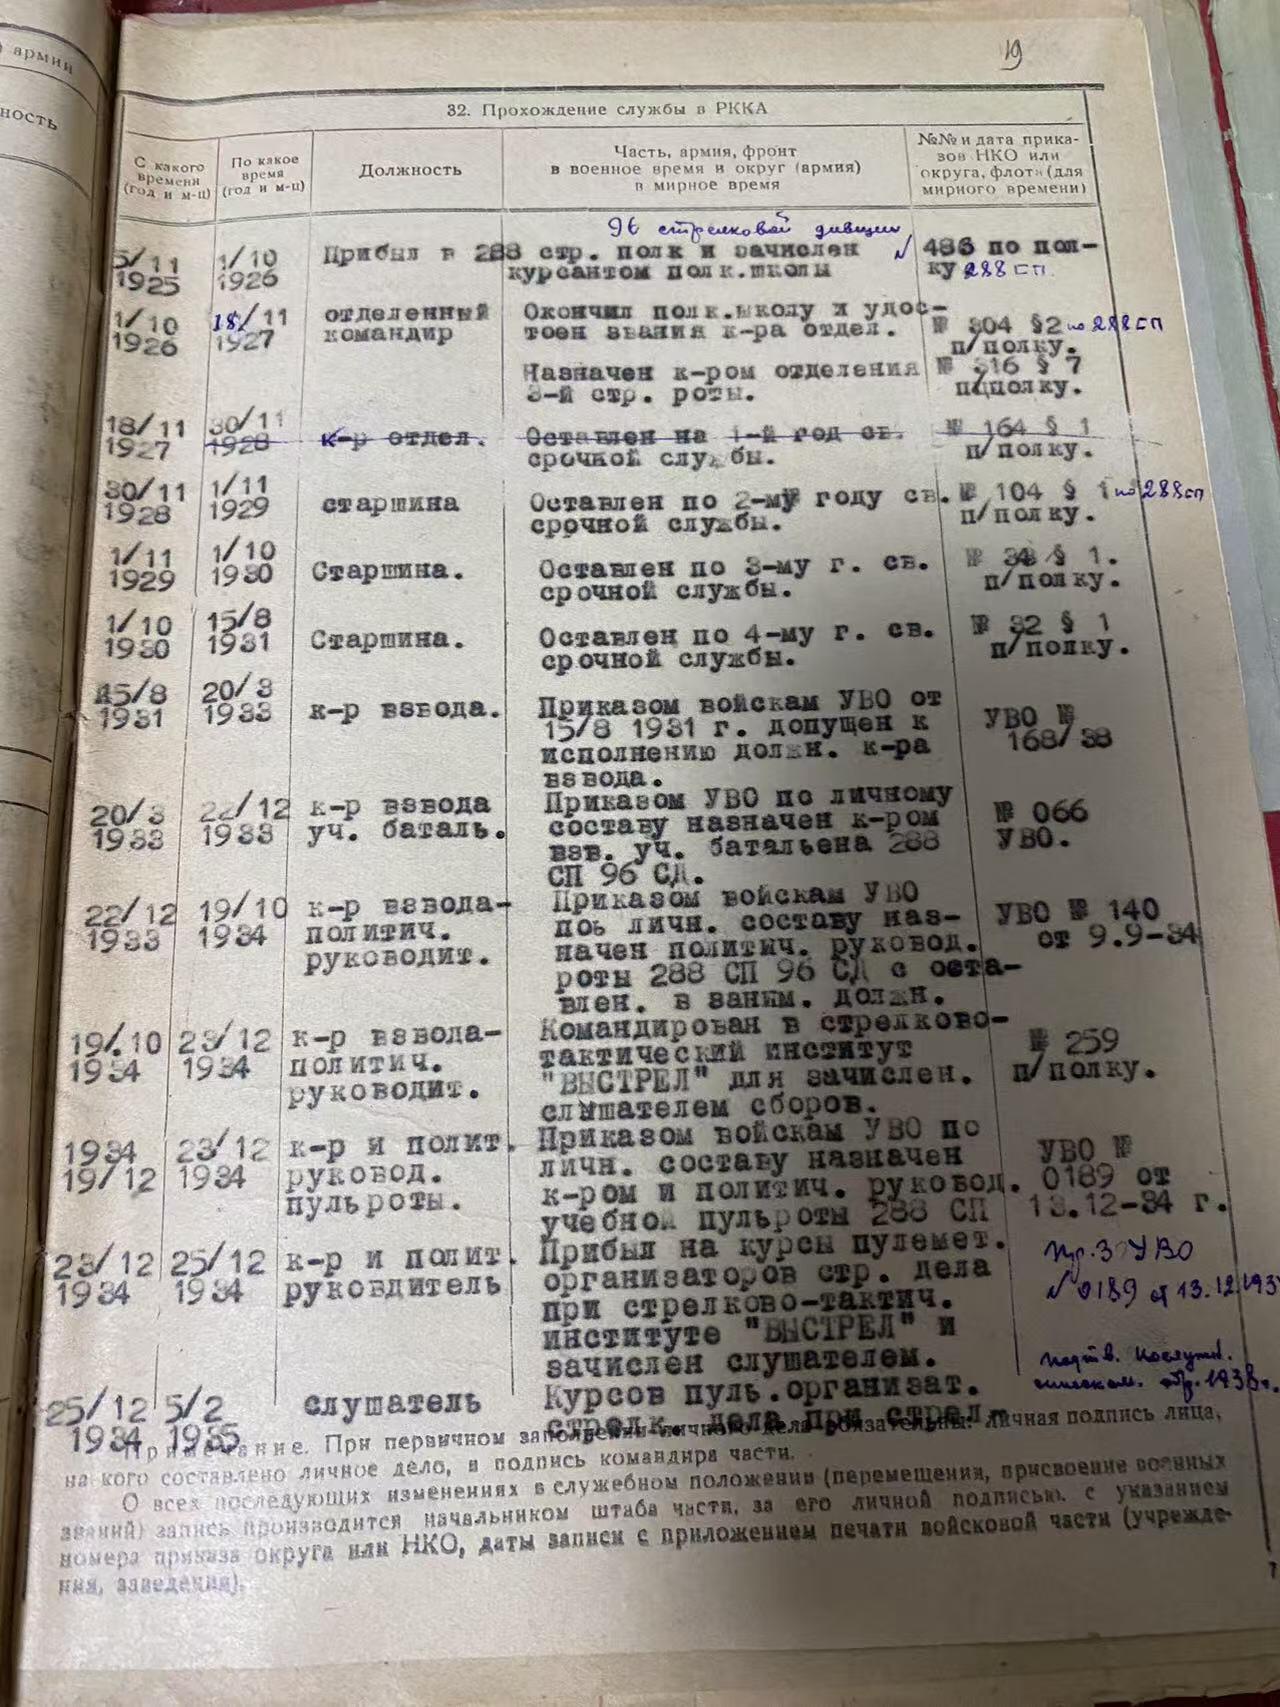 ) армии
ность
19
32. Прохождение службы в РККА
С какого
времени
(год и м-ц)
По какое
время
(год и м-ц)
Должность
Часть, армия, фронт
в военное время и округ (армия)
в мирное время
№№ и дата прика-
зов НКО или
округа, флота (для
мирного времени)
96 стрелковой дивизии
5/11 1/10 Прибыл в 288 стр. полк и зачислен № 486 по пол-
1925 1926 курсантом полк.школы ку 288 сп.
1/10 18/11 отделенный Окончил полк.школу и удос-
1926 1927 командир тоен звания к-ра отдел. № 304 §2 по 288 СП
п/полку.
Назначен к-ром отделения № 316 § 7
3-й стр. роты. п/полку.
18/11 30/11
1927 1928 к-р отдел. Оставлен на 1-й год св. № 164 § 1
срочной службы. п/полку.
30/11 1/11 старшина Оставлен по 2-му году св. № 104 § 1 по 288 сп
1928 1929 срочной службы. п/полку.
1/11 1/10 Старшина. Оставлен по 3-му г. св. № 34 § 1.
1929 1930 срочной службы. п/полку.
1/10 15/8 Старшина. Оставлен по 4-му г. св. № 32 § 1
1930 1931 срочной службы. п/полку.
15/8 20/3 к-р взвода. Приказом войскам УВО от УВО №
1931 1933 15/8 1931 г. допущен к 168/38
исполнению должн. к-ра
взвода.
20/3 22/12 к-р взвода Приказом УВО по личному № 066
1933 1933 уч. баталь. составу назначен к-ром УВО.
взв. уч. батальена 288
СП 96 СД.
22/12 19/10 к-р взвода- Приказом войскам УВО УВО № 140
1933 1934 политич. поь личн. составу наз- от 9.9-34
руководит. начен политич. руковод.
роты 288 СП 96 СД с оста-
влен. в заним. должн.
19/.10 23/12 к-р взвода- Командирован в стрелково- № 259
1934 1934 политич. тактический институт п/полку.
руководит. "ВЫСТРЕЛ" для зачислен.
слышателем сборов.
1934 23/12 к-р и полит. Приказом войскам УВО по УВО №
19/12 1934 руковод. личн. составу назначен 0189 от
пульроты. к-ром и политич. руковод. 13.12-34 г.
учебной пульроты 288 СП
23/12 25/12 к-р и полит. Прибыл на курсы пулемет. пр. УВО
1934 1934 руковдитель организаторов стр. дела № 0189 от 13.12.193
при стрелково-тактич.
институте "ВЫСТРЕЛ" и
зачислен слушателем. подтв. послужн.
25/12 5/2 слушатель Курсов пуль.организат. списком. 1938 г.
1934 1935 стрелк. дела при стрел-
Примечание. При первичном заполнении личного дела обязательны: личная подпись лица,
на кого составлено личное дело, и подпись командира части.
О всех последующих изменениях в служебном положении (перемещения, присвоение военных
званий) запись производится начальником штаба части, за его личной подписью, с указанием
номера приказа округа или НКО, даты записи с приложением печати войсковой части (учрежде-
ния, заведения).